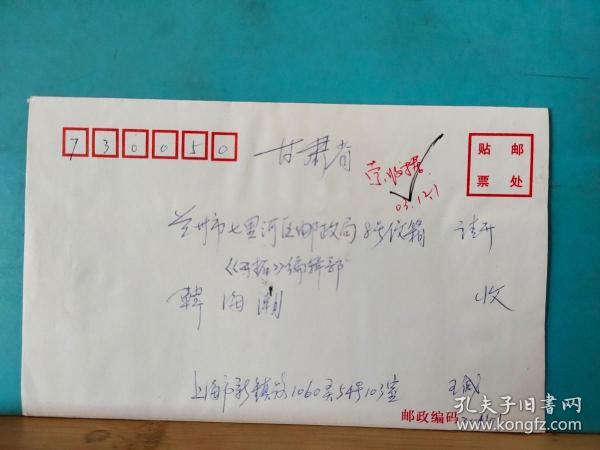 730050
甘肃省
03.12.1
贴邮
票处
兰州市七里河区邮政局8号信箱 请交
《开拓》编辑部
韩海潮 收
上海市新镇路1060弄54号103室 王
邮政编码
孔夫子旧书网
www.kongfz.com